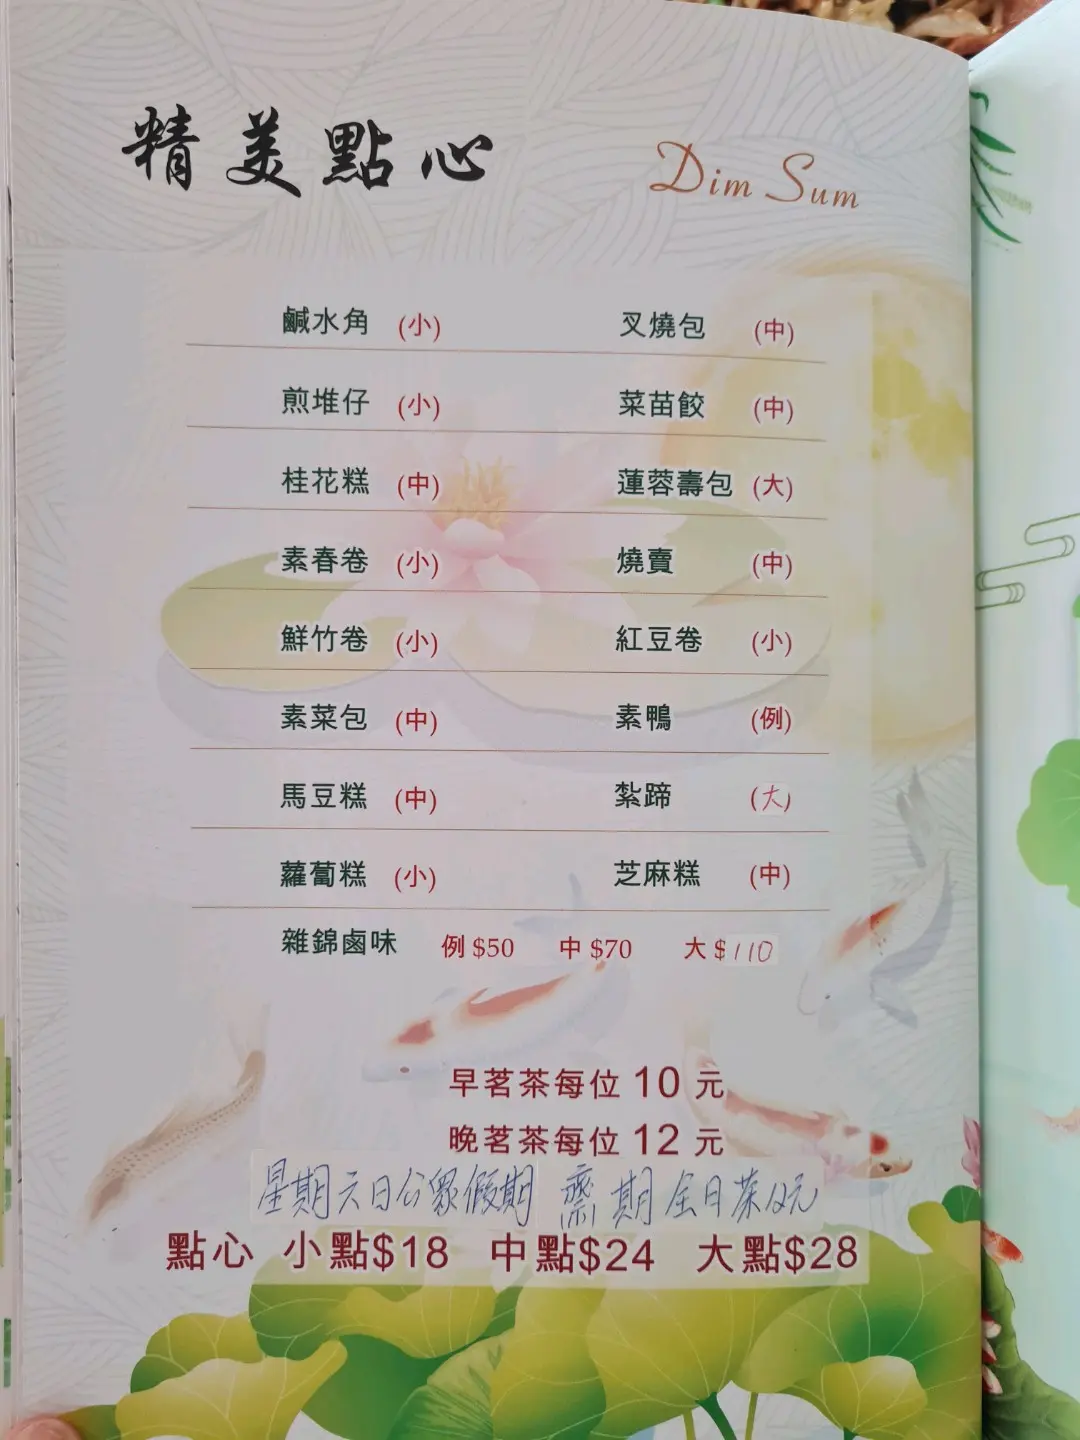 精美點心 Dim Sum
鹹水角 (小) 叉燒包 (中)
煎堆仔 (小) 菜苗餃 (中)
桂花糕 (中) 蓮蓉壽包 (大)
素春卷 (小) 燒賣 (中)
鮮竹卷 (小) 紅豆卷 (小)
素菜包 (中) 素鴨 (例)
馬豆糕 (中) 紮蹄 (大)
蘿蔔糕 (小) 芝麻糕 (中)
雜錦鹵味 例 $50 中 $70 大 $110
早茗茶每位 10 元
晚茗茶每位 12 元
星期六日公眾假期 齋期全日茶12元
點心 小點$18 中點$24 大點$28